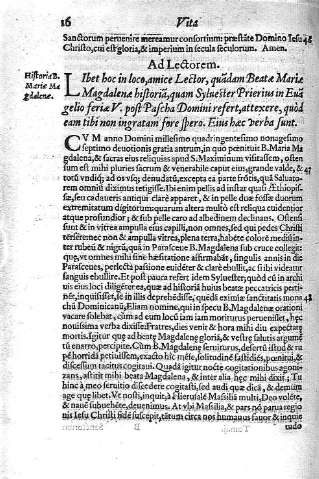 16 Vita
Sanctorum peruenire mereamur consortium: præstāte Domino Iesu
Christo, cui est gloria, & imperium in secula seculorum. Amen.
Ad Lectorem.
Historia B.
Mariæ Ma
gdalenæ.
Libet hoc in loco, amice Lector, quādam Beatæ Mariæ
Magdalenæ historiā, quam Syluester Prierius in Euā
gelio feriæ V. post Pascha Domini refert, attexere, quòd
eam tibi non ingratam fore spero. Eius hæc verba sunt.
CVM anno Domini millesimo quadringentesimo nonagesimo
septimo deuotionis gratia antrum, in quo pœnituit B. Maria Ma
gdalena, & sacras eius reliquias apud S. Maximinum visitassem, osten
sum est mihi pluries sacrum & venerabile caput eius, grande valde, &
totū vsque ad os denudatū, excepta ea parte frōtis, quā Saluato-
rem omnes diximus tetigisse. Ibi enim pellis ad instar quasi Æthiopis-
sæ, seu cadaueris antiqui claré apparet, & in pelle duæ fossæ duorum
extremitatum digitorum quarum altera multò est reliqua euidentior
atque profundior; & sub pelle caro ad albedinem declinans. Ostensa
sunt & in vitrea ampulla eius capilli, non omnes, sed qui pedes Christi
tersere: nec non & ampulla vitrea, plena terra, habēte colorē mediū in-
ter rubeū & nigrū, quā in Parasceue B. Magdalena sub cruce collegit:
quę, vt omnes mihi sine hæsitatione affirmabāt, singulis annis in die
Parasceues, perlecta passione euidēter & clarè ebullit, ac si ibi videatur
sanguis ebullire. Et post pauca refert idem Syluester, quòd cū in archi
uis eius loci diligēter ea, quæ ad historiā huius beatæ peccatricis perti-
nēt, inquisisset, se in illis deprehēdisse, quēdā eximiæ sanctitatis mona
chū Dominicanū, Eliam nomine, qui in specu B. Magdalenæ orationi
vacare solebat, cùm ad eum locū iam iam moriturus peruenisset, hęc
nouissima verba dixisse: Fratres, dies venit & hora mihi diu expectata
mortis. Igitur quę ad beatę Magdalenę gloriā, & vestrę salutis argumē
tū enarro, percipite. Cùm B. Magdalenę seruiturus, desertū istud & ru
pē horridā petiissem, exacto hîc mēse, solitudinē fastidiēs, pœnitui, &
discessum tacitus cogitaui. Quadā igitur nocte cogitationibus agoni-
zans, astitit mihi beata Magdalena, & inter alia hęc mihi dixit; Tu
hinc à meo seruitio discedere cogitasti, sed audi quæ dicā, & demum
age que libet. Vt nosti, inquit, à Hierusalē Massiliā multi, Deo volēte,
& naue subuehēte, deuenimus. At vbi Massilia, & pars nō parua regio
nis Iesu Christi fidē suscepit, tātum circa nos humanus fauor & inquie
tudo